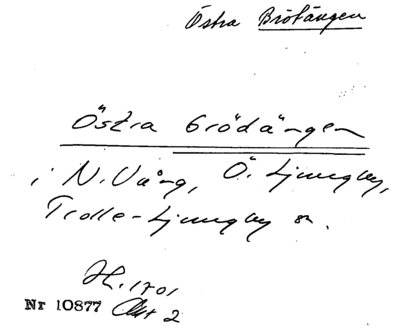 Östra Brötängen
Östra Brödängen
i N. Vång, Ö. Ljungby,
Trolle-Ljungby sn.
H. 1701
Nr 10877 Akt 2